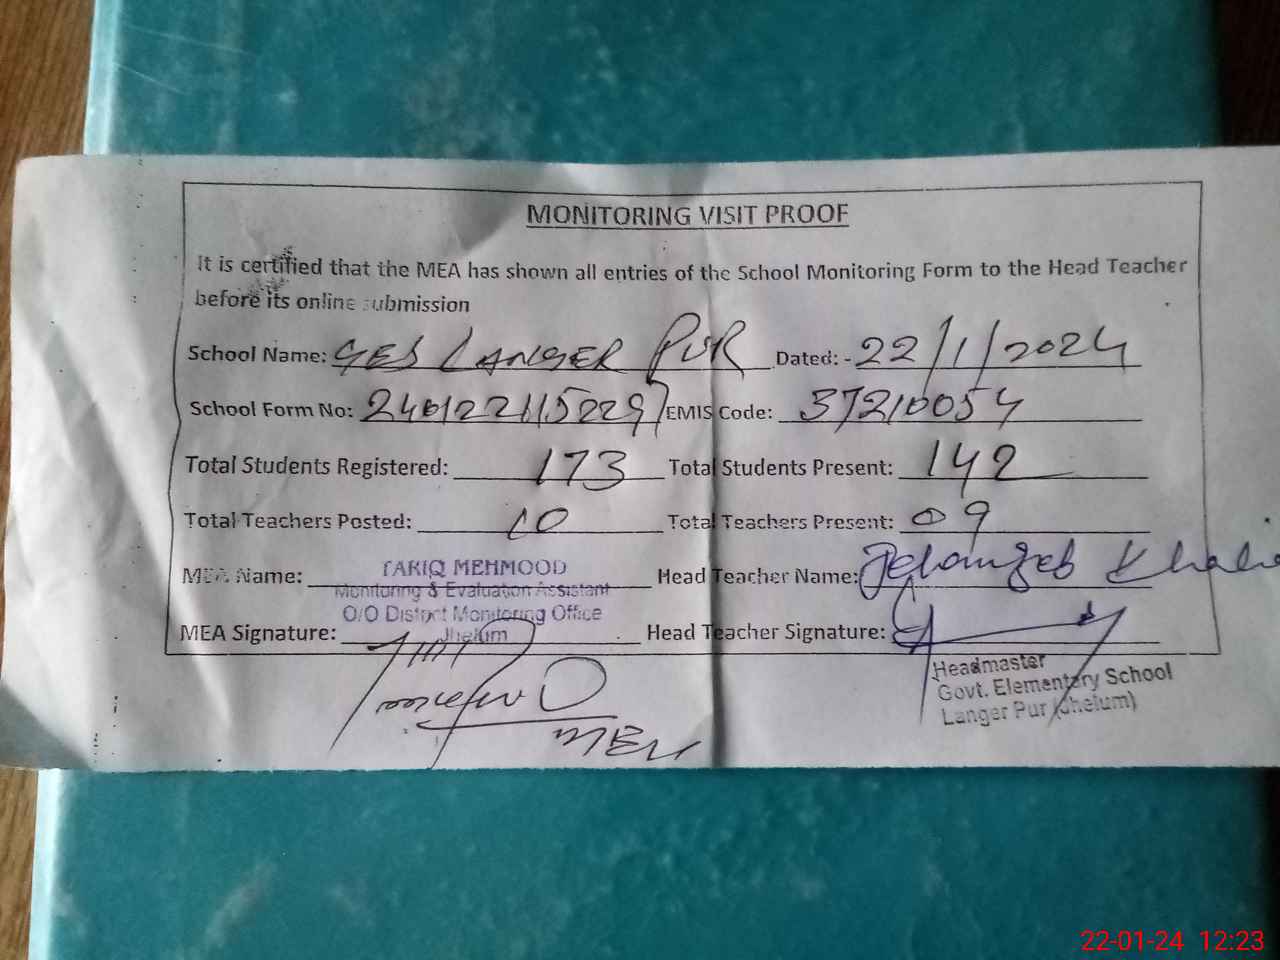 MONITORING VISIT PROOF
It is certified that the MEA has shown all entries of the School Monitoring Form to the Head Teacher
before its online submission
School Name: GES LANGER PUR Dated: - 22/1/2024
School Form No: 240122115229 EMIS Code: 37210054
Total Students Registered: 173 Total Students Present: 142
Total Teachers Posted: 10 Total Teachers Present: 09
MEA Name: TARIQ MEHMOOD Head Teacher Name: Jehangeb Khalid
Monitoring & Evaluation Assistant
O/O District Monitoring Office
MEA Signature: Jhelum Head Teacher Signature:
Headmaster
Govt. Elementary School
Langer Pur (Jhelum)
MEA
22-01-24 12:23